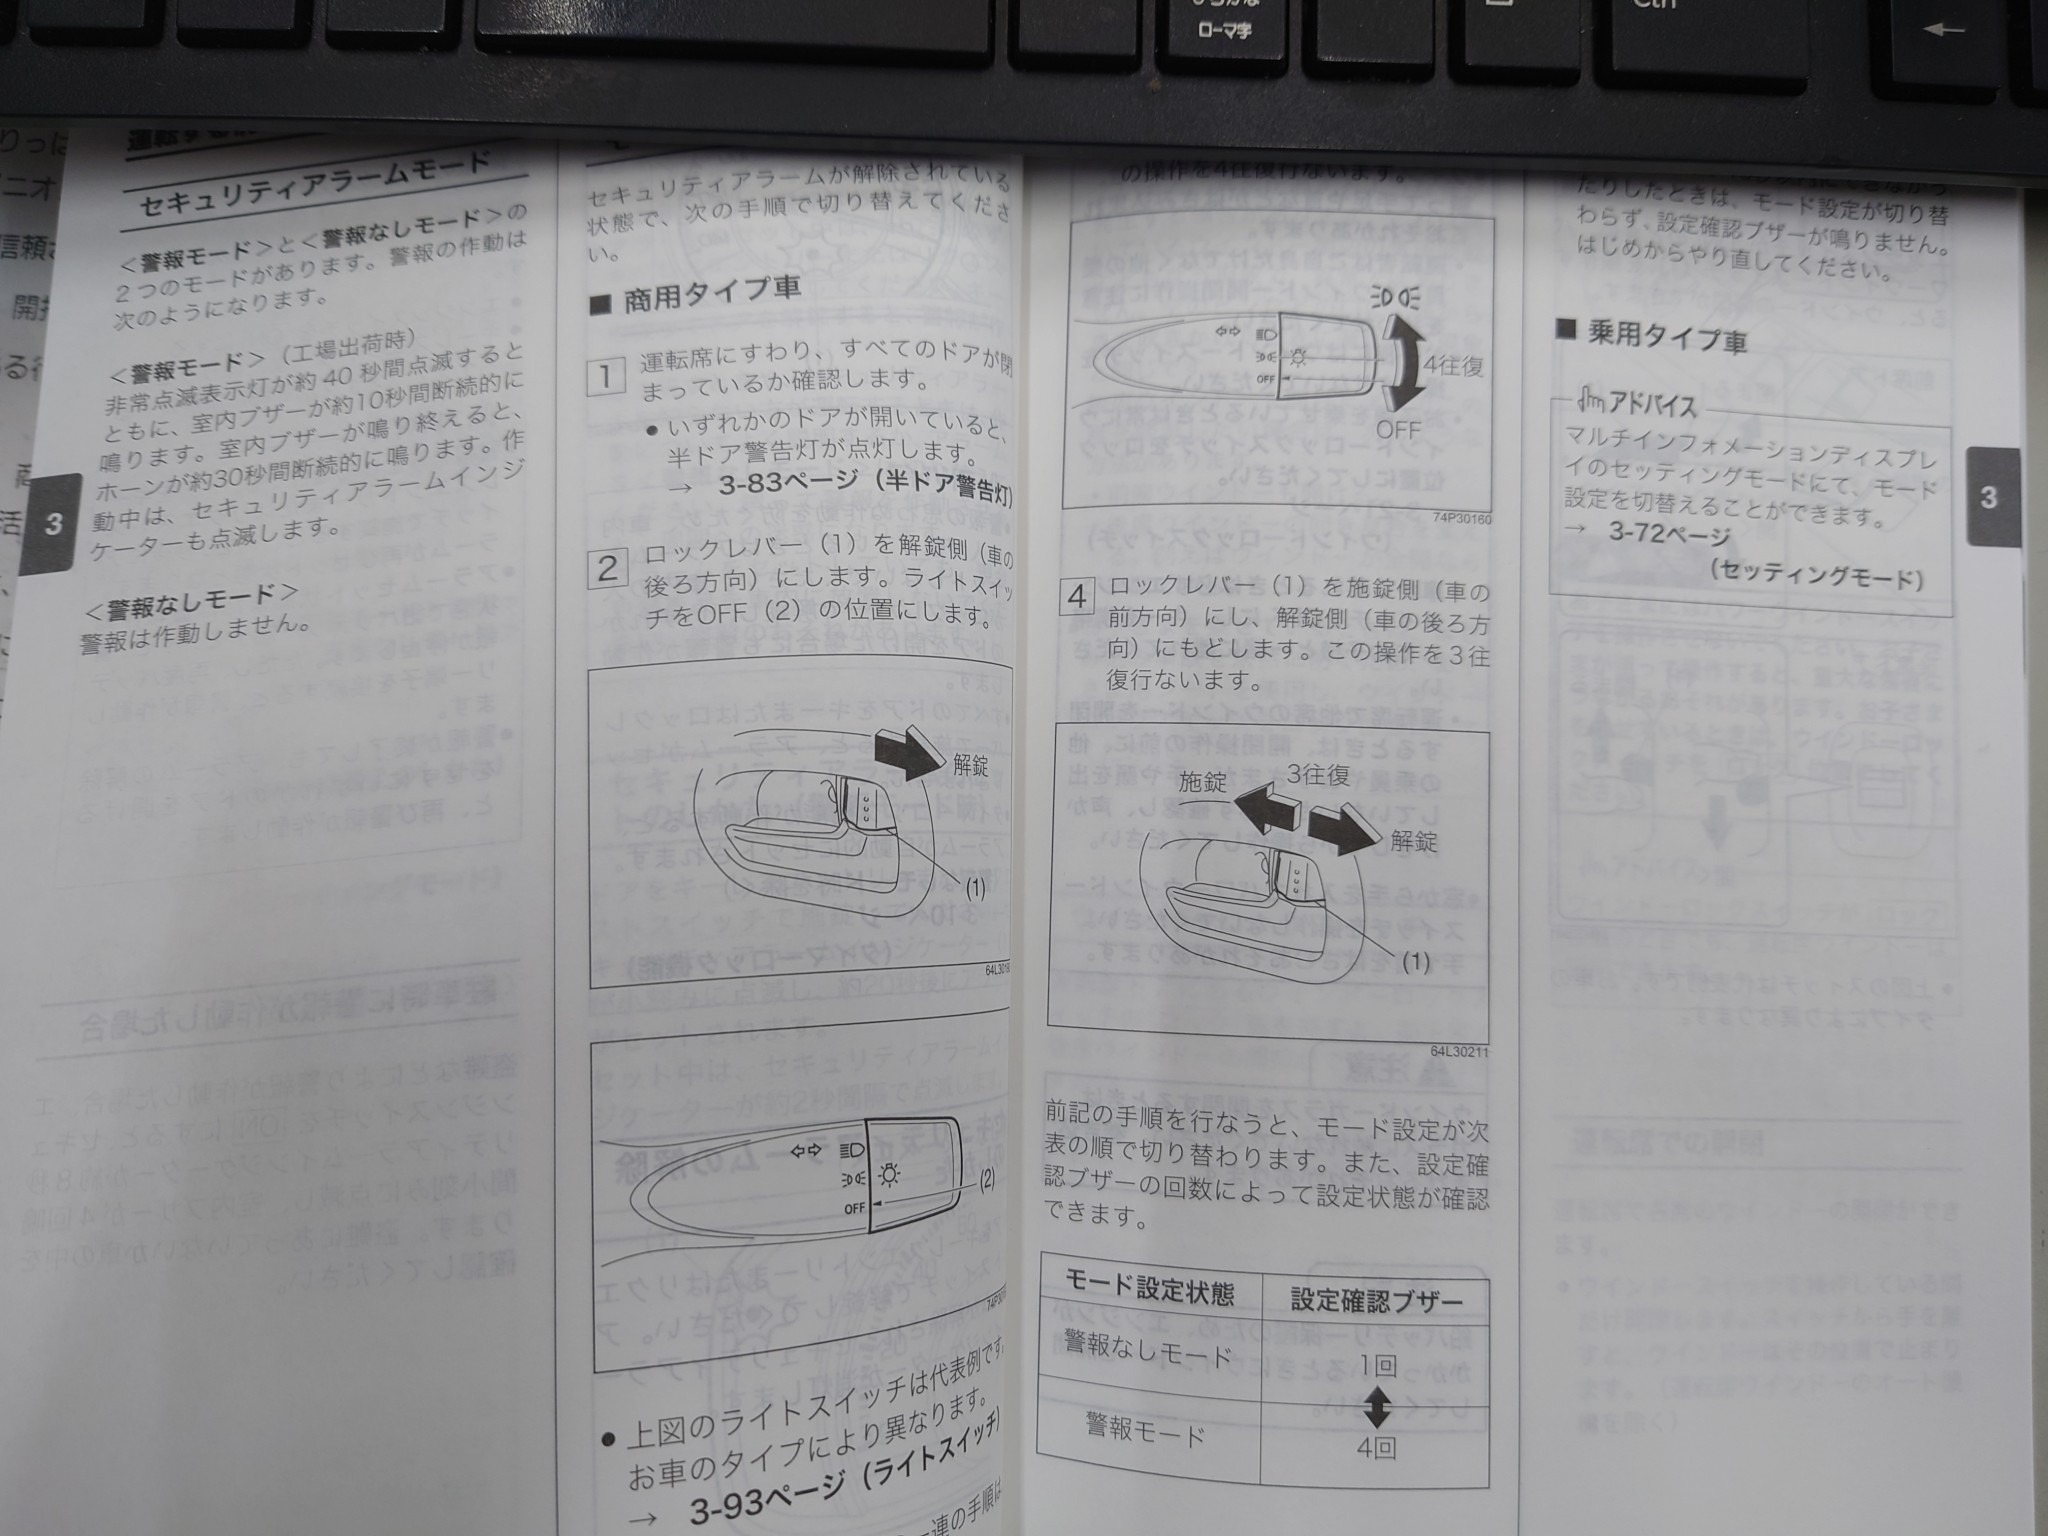 ローマ字
Ctrl
←
セキュリティアラームモード
＜警報モード＞と＜警報なしモード＞の
2つのモードがあります。警報の作動は
次のようになります。
＜警報モード＞（工場出荷時）
非常点滅表示灯が約 40 秒間点滅すると
ともに、室内ブザーが約10秒間断続的に
鳴ります。室内ブザーが鳴り終えると、
ホーンが約30秒間断続的に鳴ります。作
動中は、セキュリティアラームインジ
ケーターも点滅します。
＜警報なしモード＞
警報は作動しません。
3
セキュリティアラームが解除されている
状態で、次の手順で切り替えてくださ
い。
■ 商用タイプ車
1 運転席にすわり、すべてのドアが閉
まっているか確認します。
● いずれかのドアが開いていると、
半ドア警告灯が点灯します。
→ 3-83ページ（半ドア警告灯）
2 ロックレバー（1）を解錠側（車の
後ろ方向）にします。ライトスイッ
チをOFF（2）の位置にします。
解錠
(1)
OFF
(2)
● 上図のライトスイッチは代表例です。
お車のタイプにより異なります。
→ 3-93ページ（ライトスイッチ）
一連の手順は
の操作を4往復行ないます。
OFF
4往復
OFF
74P30160
4 ロックレバー（1）を施錠側（車の
前方向）にし、解錠側（車の後ろ方
向）にもどします。この操作を３往
復行ないます。
施錠
3往復
解錠
(1)
64L30211
前記の手順を行なうと、モード設定が次
表の順で切り替わります。また、設定確
認ブザーの回数によって設定状態が確認
できます。
モード設定状態 設定確認ブザー
警報なしモード 1回
警報モード 4回
たりしたときは、モード設定が切り替
わらず、設定確認ブザーが鳴りません。
はじめからやり直してください。
■ 乗用タイプ車
アドバイス
マルチインフォメーションディスプレ
イのセッティングモードにて、モード
設定を切替えることができます。
→ 3-72ページ
（セッティングモード）
3